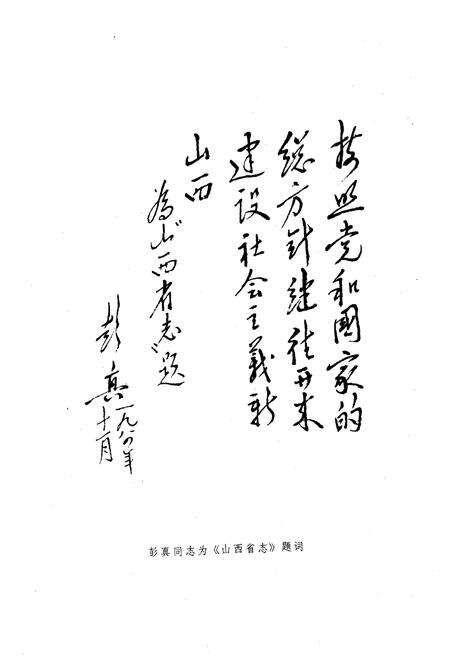 按照党和國家的
総方针継往开来
建设社会主義新
山西
为"山西省志"题
彭真
一九八六年
十一月
彭真同志为《山西省志》题词